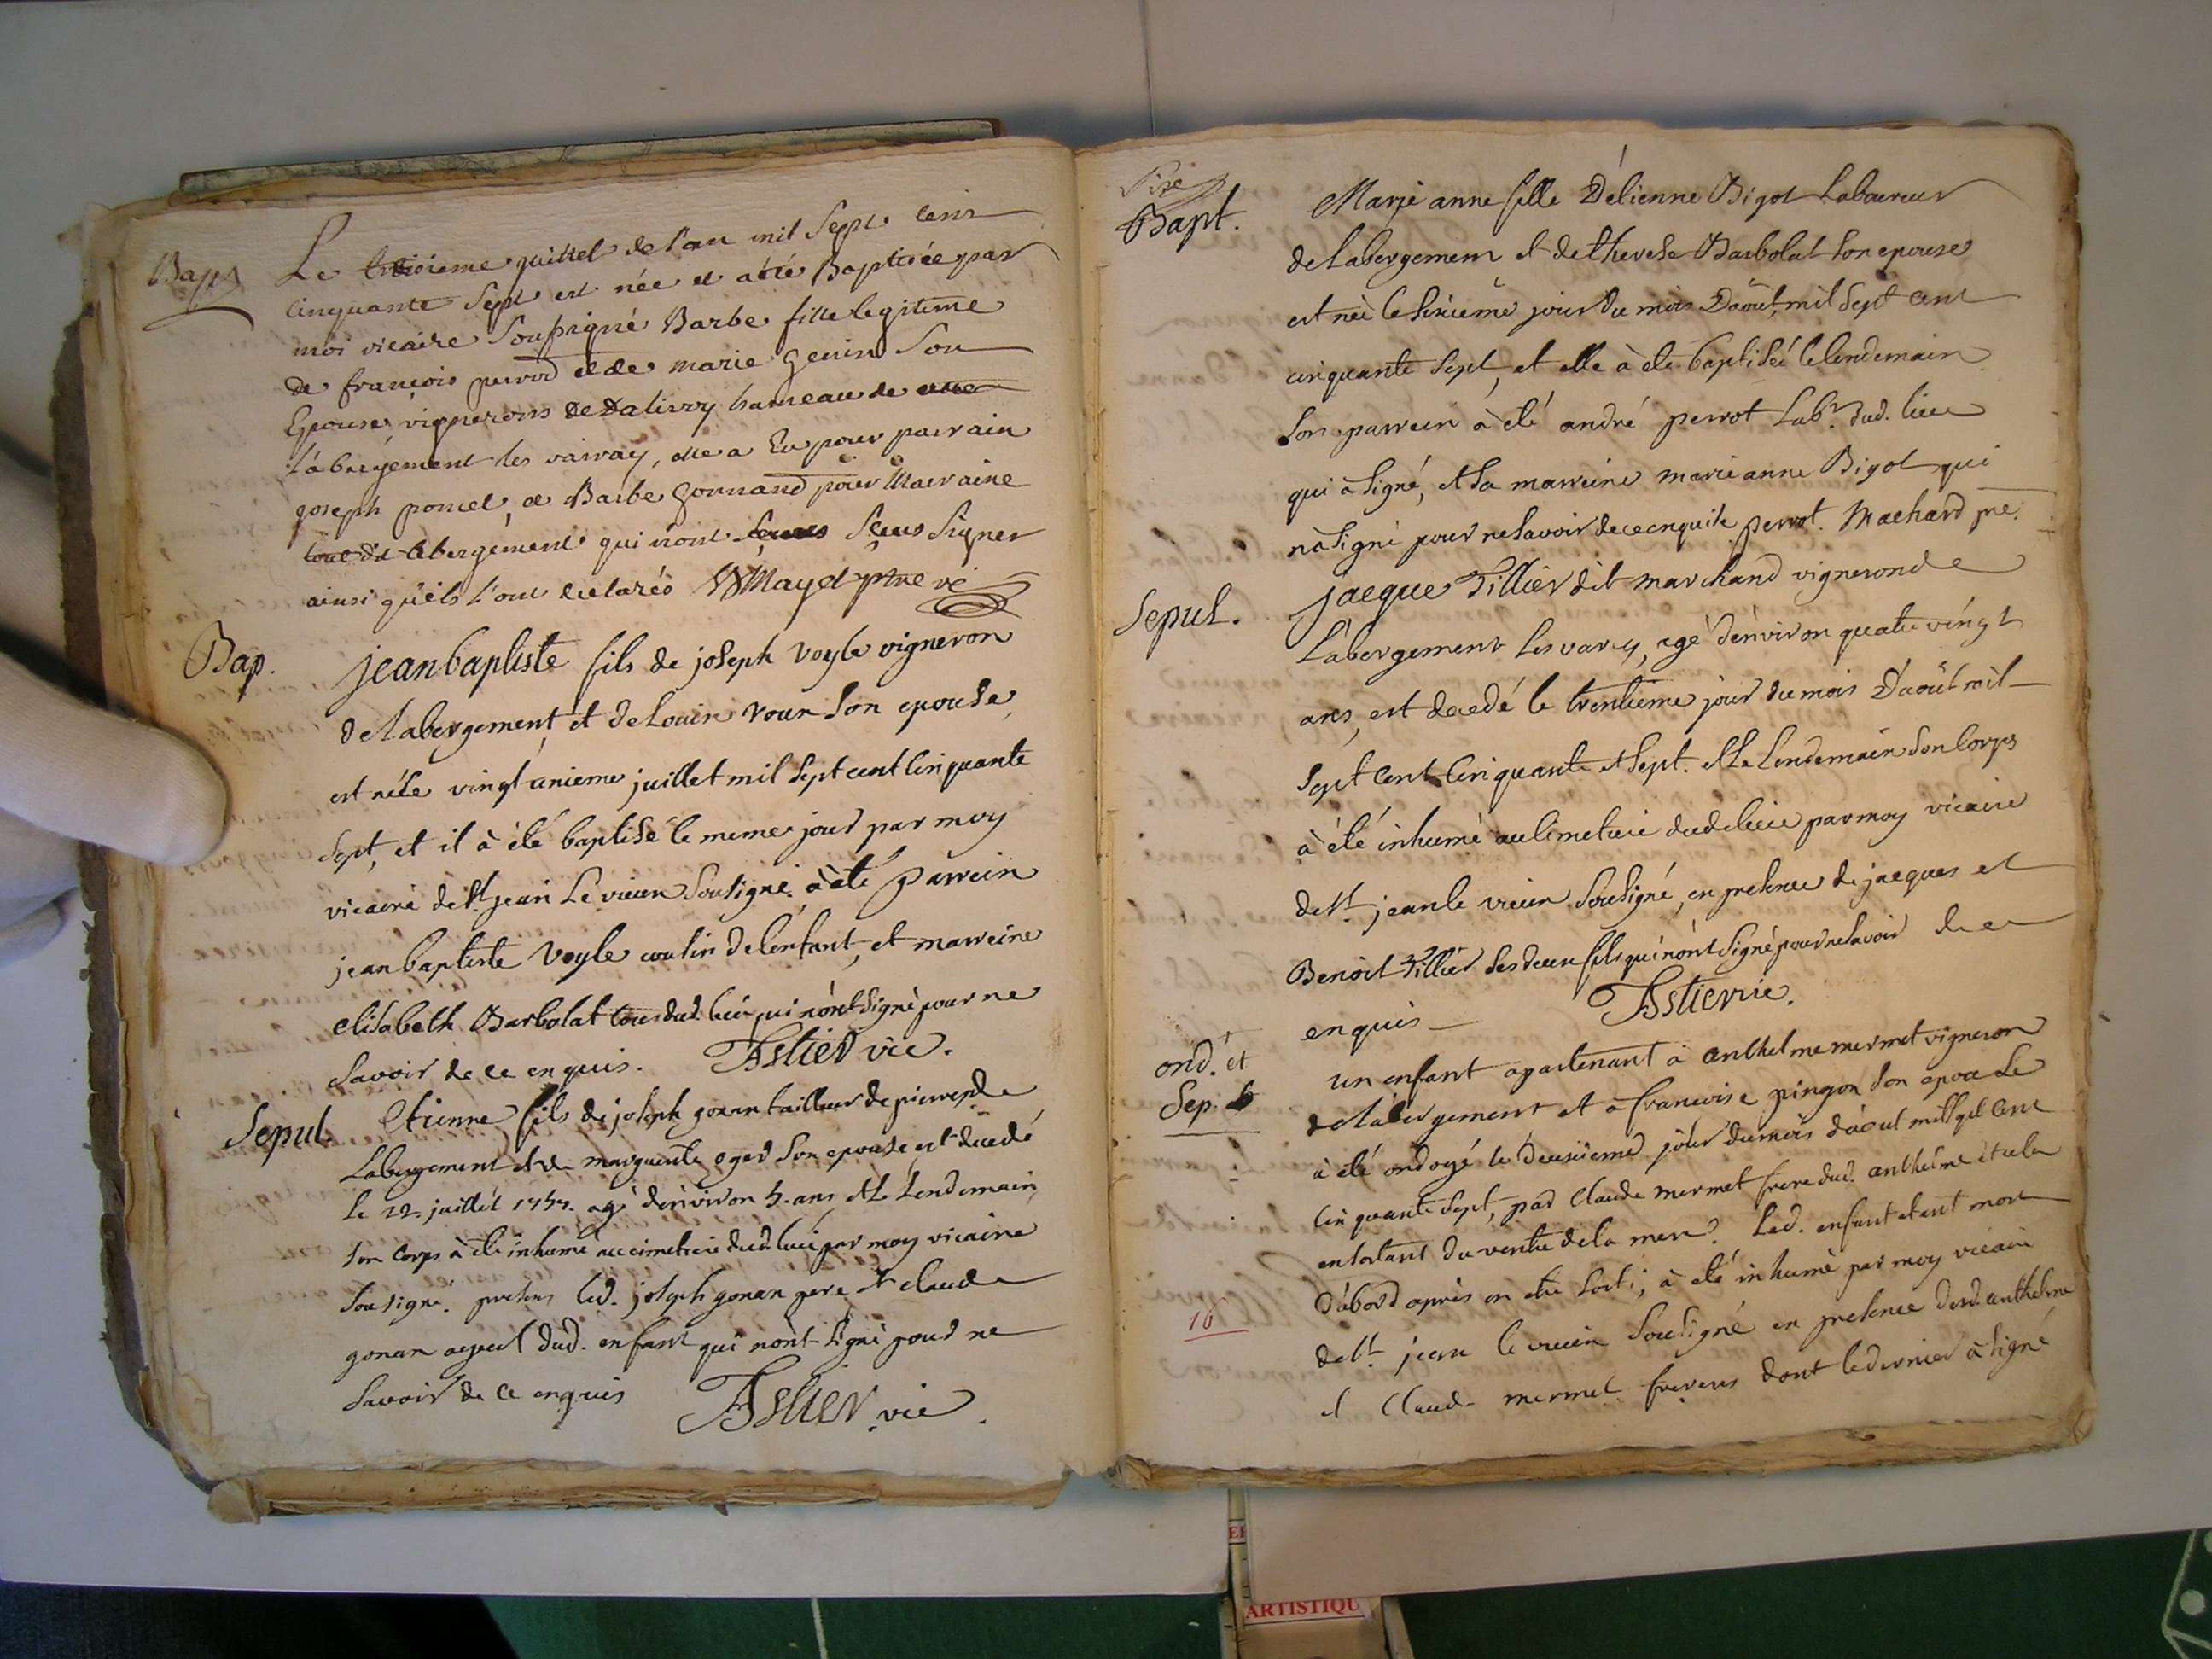 Bapt
Le troisieme juillet de l'an mil Sept Cens
cinquante Sept est née et a été Baptisée par
moi vicaire Soussigné Barbe fille legitime
de françois perrod et de marie genin Son
Epouse, vignerons de Dalivry hameau de
l'abergement les varray, elle a Eu pour parrain
joseph poncet, et Barbe gonnand pour Marraine
tous de lebergement qui nont Sçeus Signer
ainsi qu'ils l'ont declarés Mayet ptre vic
Bap.
jean baptiste fils de joseph voyle vigneron
de labergement, et de Son epouse,
est né le vingt unieme juillet mil Sept cent Cinquante
Sept, et il à été baptisé le meme jour par moy
vicaire de St. jean Le vieux Sousigné. à été parrein
jean baptiste voyle cousin de lenfant, et marreine
elisabeth Barbolat tous dud. lieu qui n'ont Signé pour ne
Savoir de ce enquis. Astier vic.
Sepul.
Etienne fils de joseph gonan tailleur de pierres de
Labergement et de marguerite oger Son epouse est decedé
le 22. juillet 1757. agé denviron 5. ans et le Lendemain
Son corps à été inhumé au cimetiere dud. lieu par moy vicaire
Sousigné. presens led. joseph gonan pere et claude
gonan ayeul dud. enfant qui n'ont Signé pour ne
Savoir de ce enquis Astier vic.
Bapt.
Marie anne fille D'étienne Bigot Laboureur
de Labergement et de therese Barbolat Son epouse
est née le Sixieme jour Du mois Daoût, mil Sept cent
cinquante Sept, et elle à été baptisée le lendemain
Son parrein à été andré perrot Labr. dud. lieu
qui à Signé, et Sa marreine marie anne Bigot qui
n'a Signé pour ne Savoir de ce enquise perrot. Machard pre.
Sepul.
jacque Tillier dit marchand vigneron de
L'abergement Les varey, agé d'environ quatre vingt
ans, est decedé le trentieme jour du mois D'aoüt mil
Sept Cent Cinquante et Sept. et Le Lendemain Son Corps
à été inhumé au Cimetiere dud. lieu par moy vicaire
de St. jean le vieux Sousigné, en presence de jacques et
Benoit Tillier Ses deux fils qui n'ont Signé pour ne Savoir de ce
enquis Astier vic.
ond. et
Sep.
un enfant apartenant à anthelme mermet vigneron
de L'abergement et à francoise pingon Son epouse
à été ondoyé le Deuxieme jour du mois d'aout mil Sept Cent
Cinquante Sept, par Claude mermet frere dud. anthelme
en Sortant du ventre de la mere. Led. enfant etant mort
D'abord après en etre Sorti, à été inhumé par moy vicaire
16
de St. jean le vieux Sousigné en presence desd. anthelme
et Claude mermet freres dont le dernier à Signé
ARTISTIQU